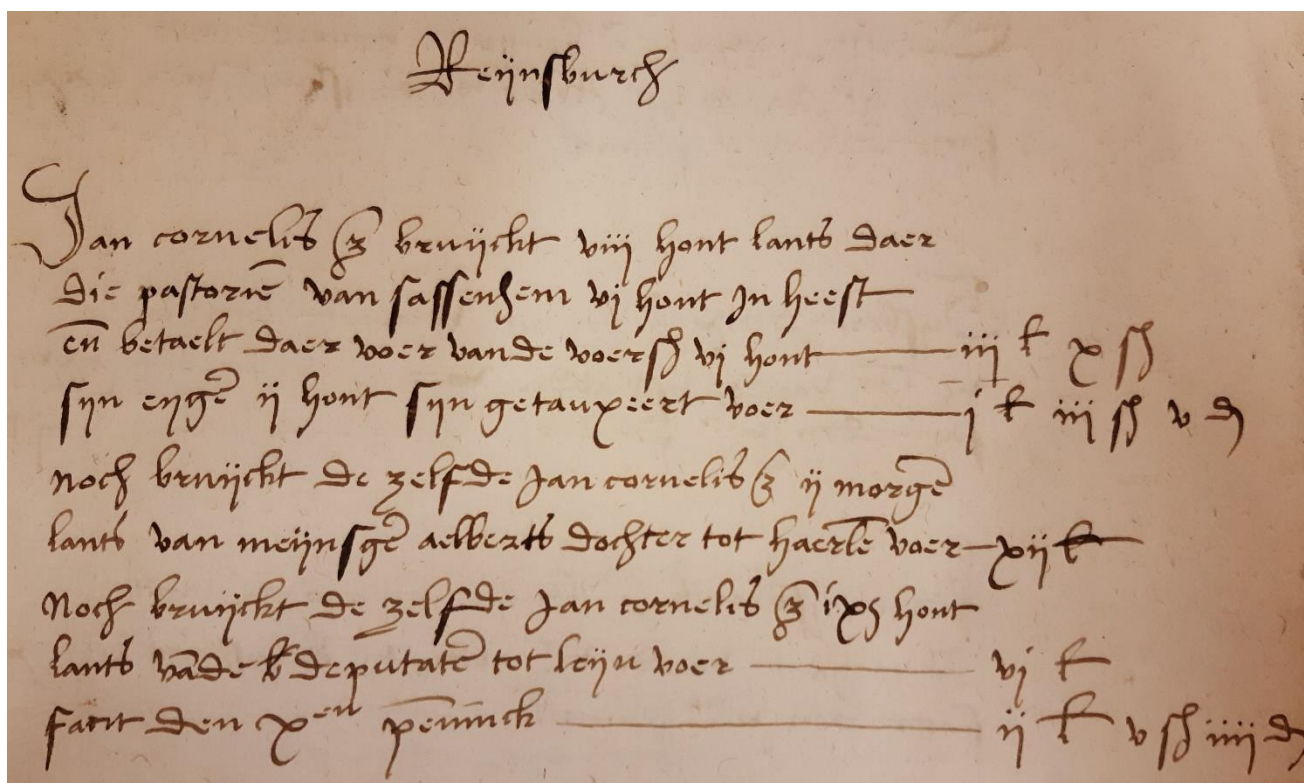 Reijnsburch
Jan cornelis z bruijckt viij hont lants daer
die pastorie van sassenhem vj hont in heeft
en betaelt daer voer vande voersz vj hont iij £ x sz
sijn eijge ij hont sijn getauxeert voer j £ iij sz v d
noch bruijckt de zelfde Jan cornelis z ij morge
lants van meijnsge aelberts dochter tot haerle voer xij £
Noch bruijckt de zelfde Jan cornelis z ixs hont
lants vande deputate tot leijn voer vj £
facit den xen penninck ij £ v sz iiij d